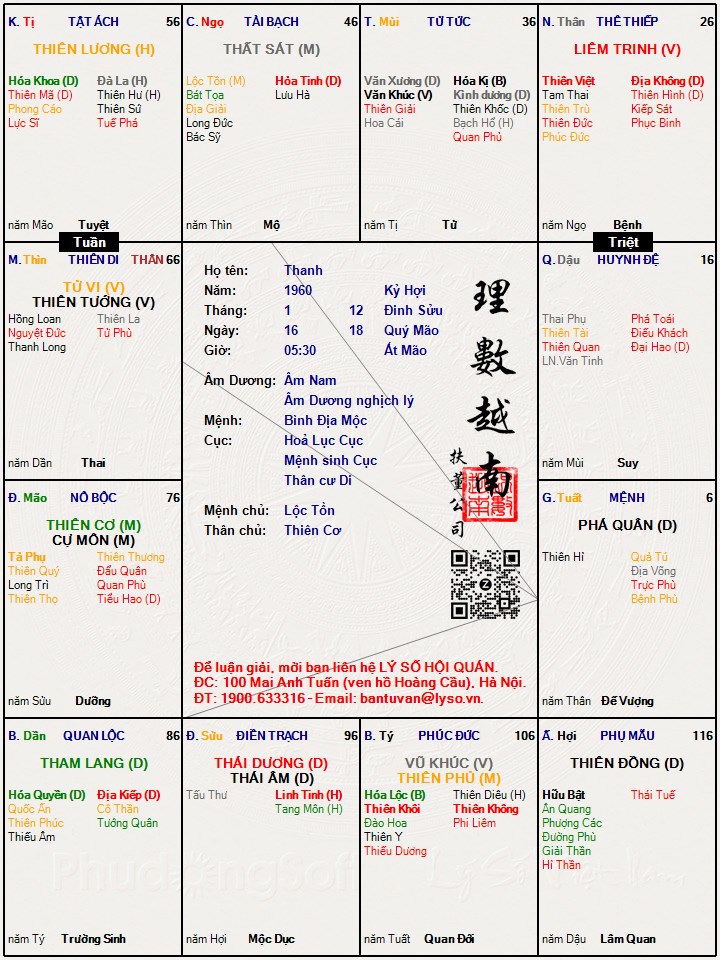 K. Tị TẬT ÁCH 56
THIÊN LƯƠNG (H)
Hóa Khoa (D) Đà La (H)
Thiên Mã (D) Thiên Hư (H)
Phong Cáo Thiên Sứ
Lực Sĩ Tuế Phá
năm Mão Tuyệt
C. Ngọ TÀI BẠCH 46
THẤT SÁT (M)
Lộc Tồn (M) Hỏa Tinh (D)
Bát Tọa Lưu Hà
Địa Giải
Long Đức
Bác Sỹ
năm Thìn Mộ
T. Mùi TỬ TỨC 36
Văn Xương (D) Hóa Kị (B)
Văn Khúc (V) Kình dương (D)
Thiên Giải Thiên Khốc (D)
Hoa Cái Bạch Hổ (H)
Quan Phủ
năm Tị Tử
N. Thân THÊ THIẾP 26
LIÊM TRINH (V)
Thiên Việt Địa Không (D)
Tam Thai Thiên Hình (D)
Thiên Trù Kiếp Sát
Thiên Đức Phục Binh
Phúc Đức
năm Ngọ Bệnh
Tuần
Triệt
M. Thìn THIÊN DI THÂN 66
TỬ VI (V)
THIÊN TƯỚNG (V)
Hồng Loan Thiên La
Nguyệt Đức Tử Phù
Thanh Long
năm Dần Thai
Họ tên: Thanh
Năm: 1960 Kỷ Hợi
Tháng: 1 12 Đinh Sửu
Ngày: 16 18 Quý Mão
Giờ: 05:30 Ất Mão
Âm Dương: Âm Nam
Âm Dương nghịch lý
Mệnh: Bình Địa Mộc
Cục: Hoả Lục Cục
Mệnh sinh Cục
Thân cư Di
Mệnh chủ: Lộc Tồn
Thân chủ: Thiên Cơ
理數越南
扶董公司
Để luận giải, mời bạn liên hệ LÝ SỐ HỘI QUÁN.
ĐC: 100 Mai Anh Tuấn (ven hồ Hoàng Cầu), Hà Nội.
ĐT: 1900.633316 - Email: bantuvan@lyso.vn.
Q. Dậu HUYNH ĐỆ 16
Thai Phụ Phá Toái
Thiên Tài Điếu Khách
Thiên Quan Đại Hao (D)
LN.Văn Tinh
năm Mùi Suy
Đ. Mão NÔ BỘC 76
THIÊN CƠ (M)
CỰ MÔN (M)
Tả Phụ Thiên Thương
Thiên Quý Đẩu Quân
Long Trì Quan Phù
Thiên Thọ Tiểu Hao (D)
năm Sửu Dưỡng
G. Tuất MỆNH 6
PHÁ QUÂN (D)
Thiên Hỉ Quả Tú
Địa Võng
Trực Phù
Bệnh Phù
năm Thân Đế Vượng
B. Dần QUAN LỘC 86
THAM LANG (D)
Hóa Quyền (D) Địa Kiếp (D)
Quốc Ấn Cô Thần
Thiên Phúc Tướng Quân
Thiếu Âm
năm Tý Trường Sinh
Đ. Sửu ĐIỀN TRẠCH 96
THÁI DƯƠNG (D)
THÁI ÂM (D)
Tấu Thư Linh Tinh (H)
Tang Môn (H)
năm Hợi Mộc Dục
B. Tý PHÚC ĐỨC 106
VŨ KHÚC (V)
THIÊN PHỦ (M)
Hóa Lộc (B) Thiên Diêu (H)
Thiên Khôi Thiên Không
Đào Hoa Phi Liêm
Thiên Y
Thiếu Dương
năm Tuất Quan Đới
Ấ. Hợi PHỤ MẪU 116
THIÊN ĐỒNG (D)
Hữu Bật Thái Tuế
Ân Quang
Phượng Các
Đường Phù
Giải Thần
Hỉ Thần
năm Dậu Lâm Quan